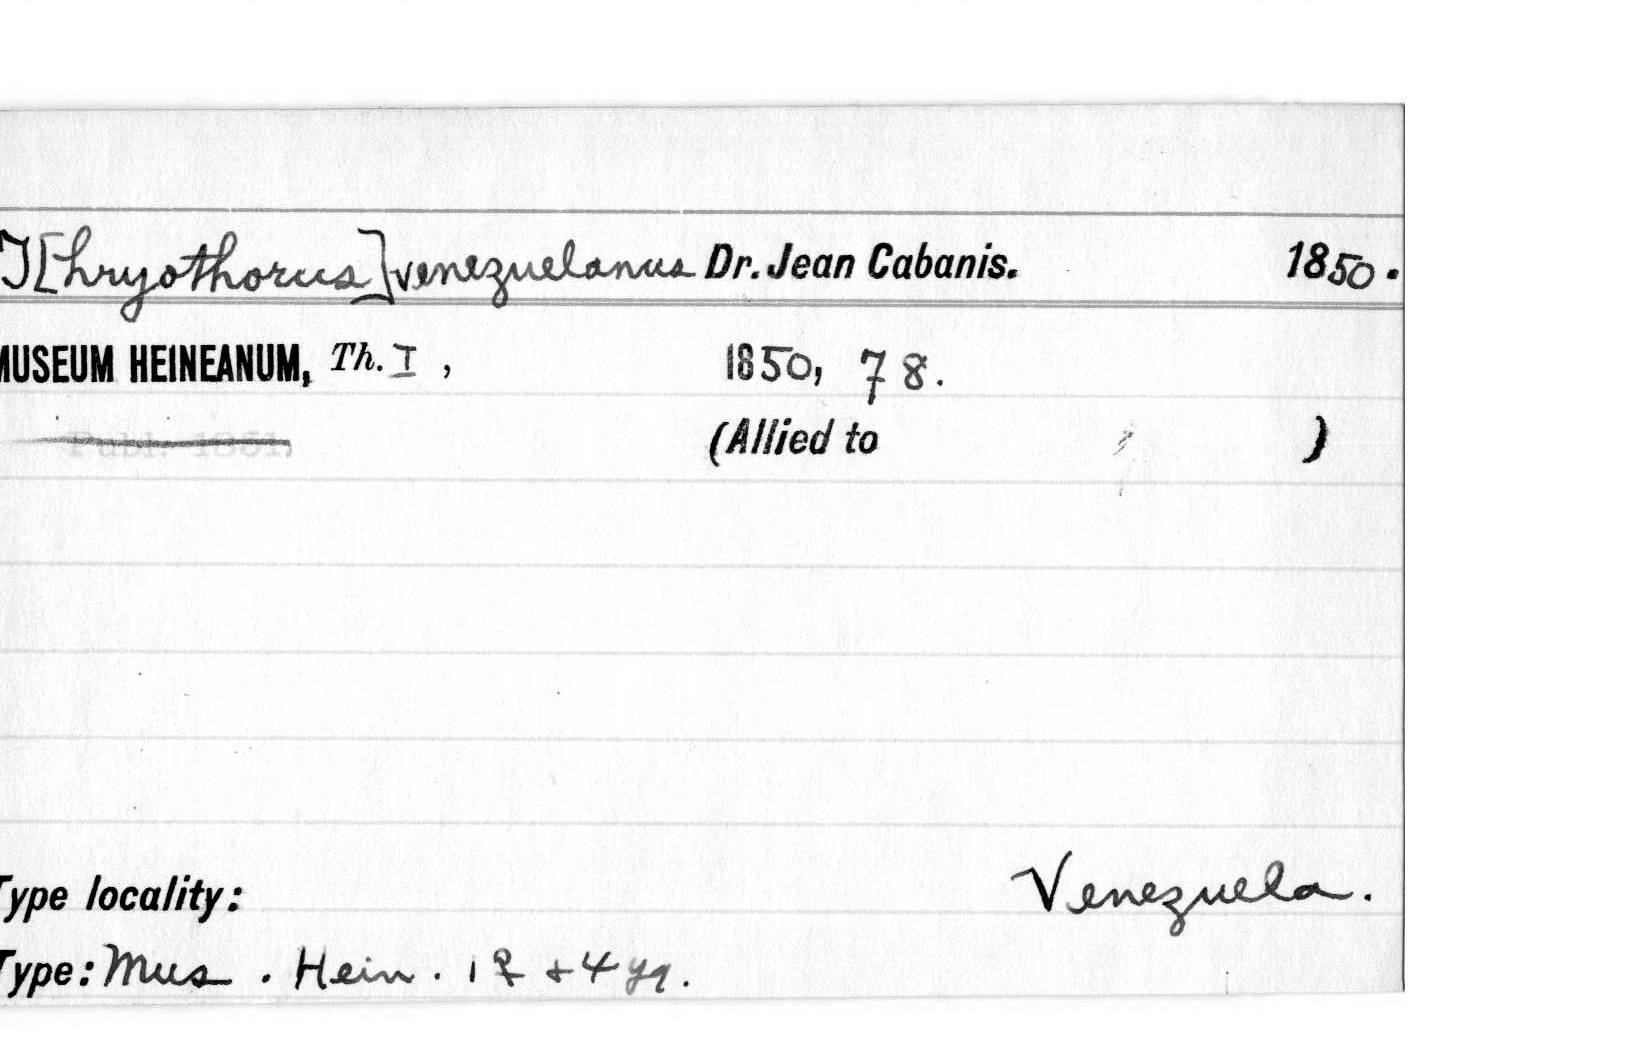 T[hryothorus] venezuelanus Dr. Jean Cabanis. 1850.
MUSEUM HEINEANUM, Th. I, 1850, 78.
Publ. 1851. (Allied to )
Type locality: Venezuela.
Type: Mus. Hein. 1 ♀ + 4 yg.